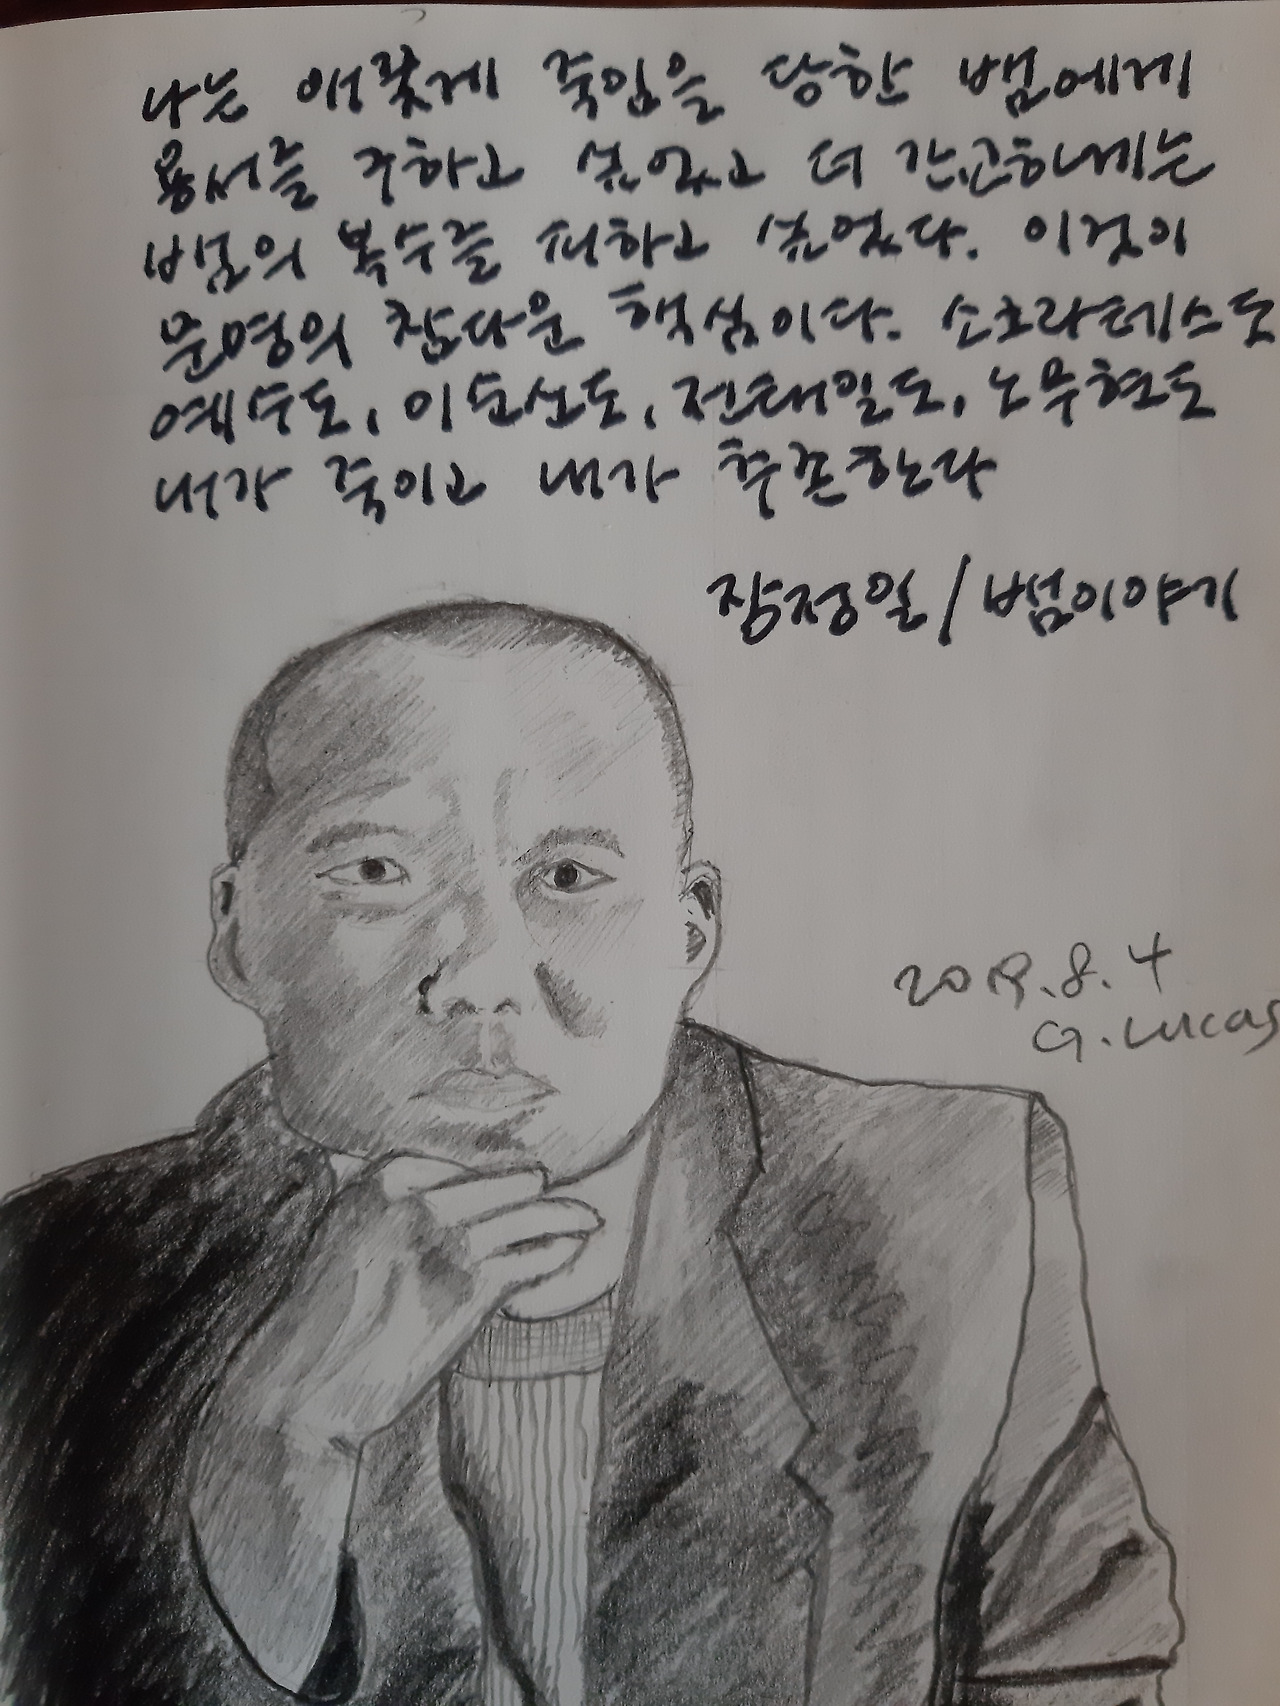 나는 애꿎게 죽임을 당한 뱀에게
용서를 구하고 싶었고 더 간곡하게는
뱀의 복수를 피하고 싶었다. 이것이
문명의 참다운 핵심이다. 소크라테스도
예수도, 이순신도, 전태일도, 노무현도
내가 죽이고 내가 추존한다
장정일/뱀이야기
2019.8.4
G.Lucas